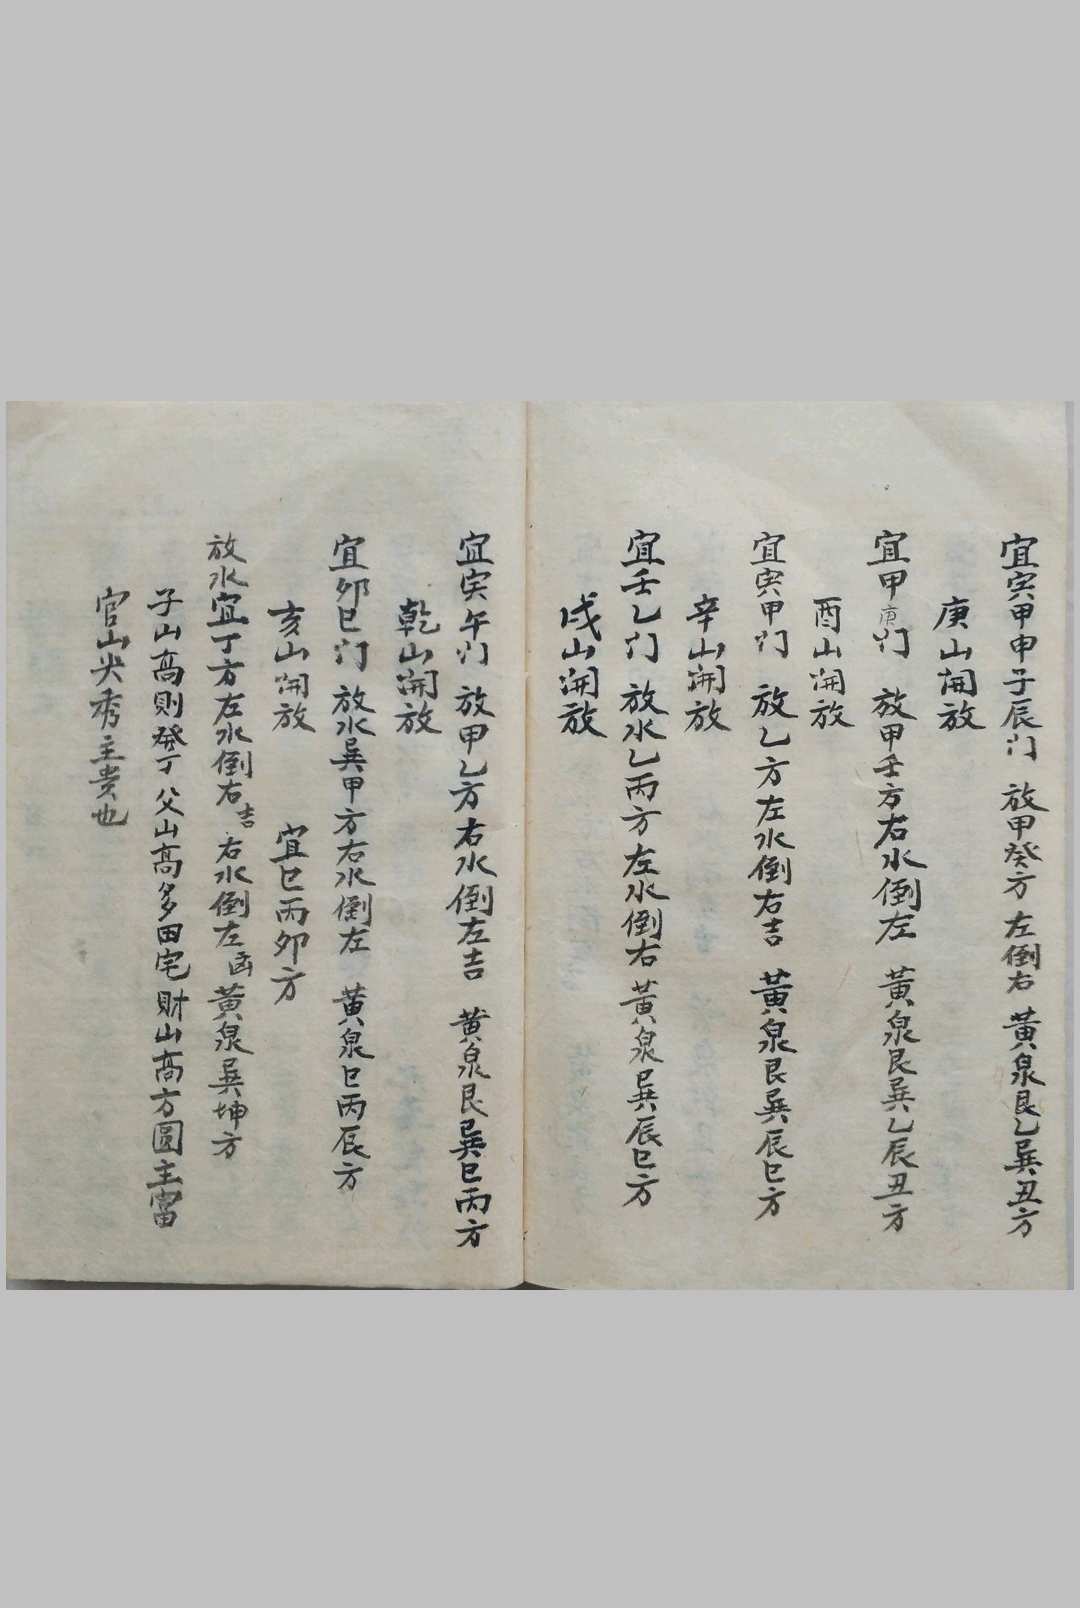 宜寅甲申子辰门 放甲癸方 左倒右 黄泉艮乙巽丑方
庚山開放
宜甲庚门 放甲壬方右水倒左 黄泉艮巽乙辰丑方
酉山開放
宜寅甲门 放乙方左水倒右吉 黄泉艮巽辰巳方
辛山開放
宜壬乙门 放水乙丙方左水倒右黄泉艮巽辰巳方
戌山開放
宜寅午门 放甲乙方右水倒左吉 黄泉艮巽巳丙方
乾山開放
宜卯巳门 放水巽甲方右水倒左 黄泉巳丙辰方
亥山開放 宜巳丙卯方
放水宜丁方左水倒右吉 右水倒左凶黄泉巽坤方
子山高則發丁父山高多田宅財山高方圓主富
官山尖秀主貴也